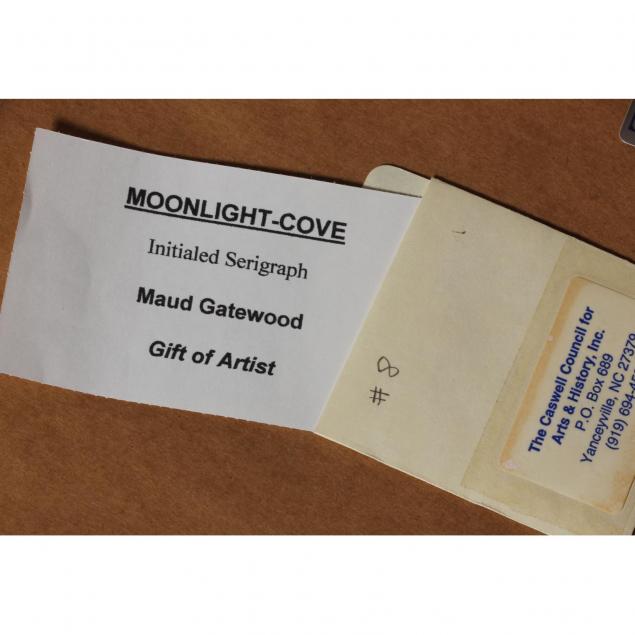 MOONLIGHT-COVE
Initialed Serigraph
Maud Gatewood
Gift of Artist
# 8
The Caswell Council for
Arts & History, Inc.
P.O. Box 689
Yanceyville, NC 27379
(919) 694-